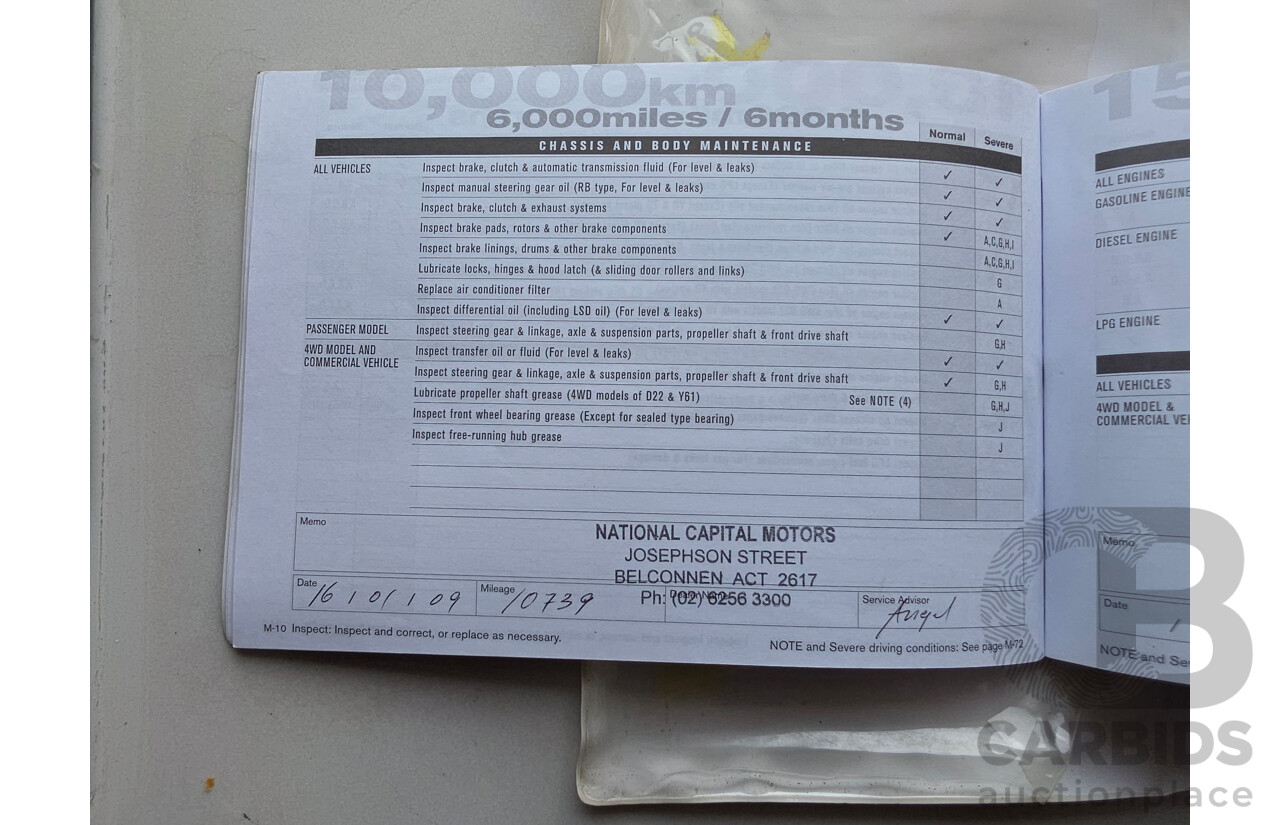 10,000km
6,000miles / 6months
Normal Severe
CHASSIS AND BODY MAINTENANCE
ALL VEHICLES Inspect brake, clutch & automatic transmission fluid (For level & leaks) ✓ ✓
Inspect manual steering gear oil (RB type, For level & leaks) ✓ ✓
Inspect brake, clutch & exhaust systems ✓ ✓
Inspect brake pads, rotors & other brake components ✓ A,C,G,H,I
Inspect brake linings, drums & other brake components A,C,G,H,I
Lubricate locks, hinges & hood latch (& sliding door rollers and links) G
Replace air conditioner filter A
Inspect differential oil (including LSD oil) (For level & leaks) ✓ ✓
PASSENGER MODEL Inspect steering gear & linkage, axle & suspension parts, propeller shaft & front drive shaft G,H
4WD MODEL AND
COMMERCIAL VEHICLE
Inspect transfer oil or fluid (For level & leaks) ✓ ✓
Inspect steering gear & linkage, axle & suspension parts, propeller shaft & front drive shaft ✓ G,H
Lubricate propeller shaft grease (4WD models of D22 & Y61) See NOTE (4) G,H,J
Inspect front wheel bearing grease (Except for sealed type bearing) J
Inspect free-running hub grease J
Memo
NATIONAL CAPITAL MOTORS
JOSEPHSON STREET
BELCONNEN ACT 2617
Ph: (02) 6256 3300
Date 16/01/09 Mileage 10739 Dealer Name Service Advisor
M-10 Inspect: Inspect and correct, or replace as necessary.
NOTE and Severe driving conditions: See page M-72
15
ALL ENGINES
GASOLINE ENGINE
DIESEL ENGINE
LPG ENGINE
ALL VEHICLES
4WD MODEL &
COMMERCIAL VE
Memo
Date /
NOTE and Se
CB
CARBIDS
auctionplace